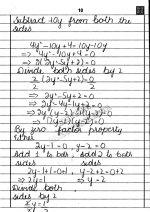 10
Subtract 10y from both the
sides
4y² - 10y + 4 = 10y - 10y
⇒ 4y² - 10y + 4 = 0
⇒ 2(2y² - 5y + 2) = 0
Divide both sides by 2
⇒ 2y² - 5y + 2 = 0
⇒ 2y² - 4y - 1y + 2 = 0
⇒ 2y(y - 2) - 1(y - 2) = 0
⇒ (2y - 1)(y - 2) = 0
By zero factor property
Either
2y - 1 = 0, y - 2 = 0
Add 1 to both, add 2 to both
sides sides
2y - 1 + 1 = 0 + 1, y - 2 + 2 = 0 + 2
⇒ 2y = 1 ⇒ y = 2
Divide both
sides by 2